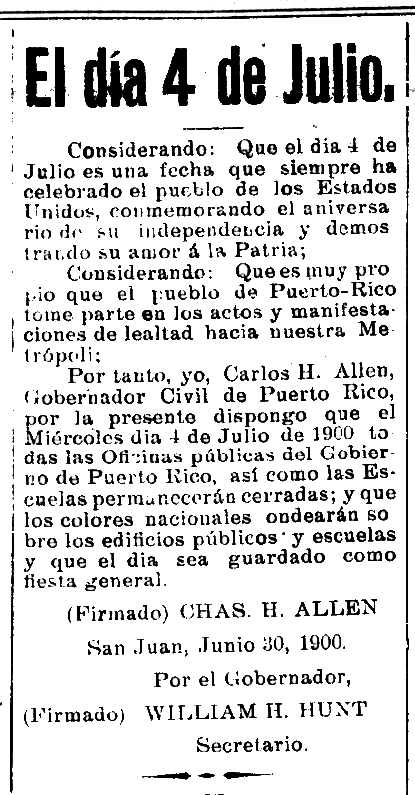 El día 4 de Julio.
Considerando: Que el dia 4 de
Julio es una fecha que siempre ha
celebrado el pueblo de los Estados
Unidos, conmemorando el aniversa
rio de su independencia y demos
trando su amor á la Patria;
Considerando: Que es muy pro
pio que el pueblo de Puerto-Rico
tome parte en los actos y manifesta-
ciones de lealtad hacia nuestra Me-
trópoli;
Por tanto, yo, Carlos H. Allen,
Gobernador Civil de Puerto Rico,
por la presente dispongo que el
Miércoles dia 4 de Julio de 1900 to
das las Oficinas públicas del Gobier-
no de Puerto Rico, así como las Es-
cuelas permanecerán cerradas; y que
los colores nacionales ondearán so
bre los edificios públicos y escuelas
y que el dia sea guardado como
fiesta general.
(Firmado) CHAS. H. ALLEN
San Juan, Junio 30, 1900.
Por el Gobernador,
(Firmado) WILLIAM H. HUNT
Secretario.